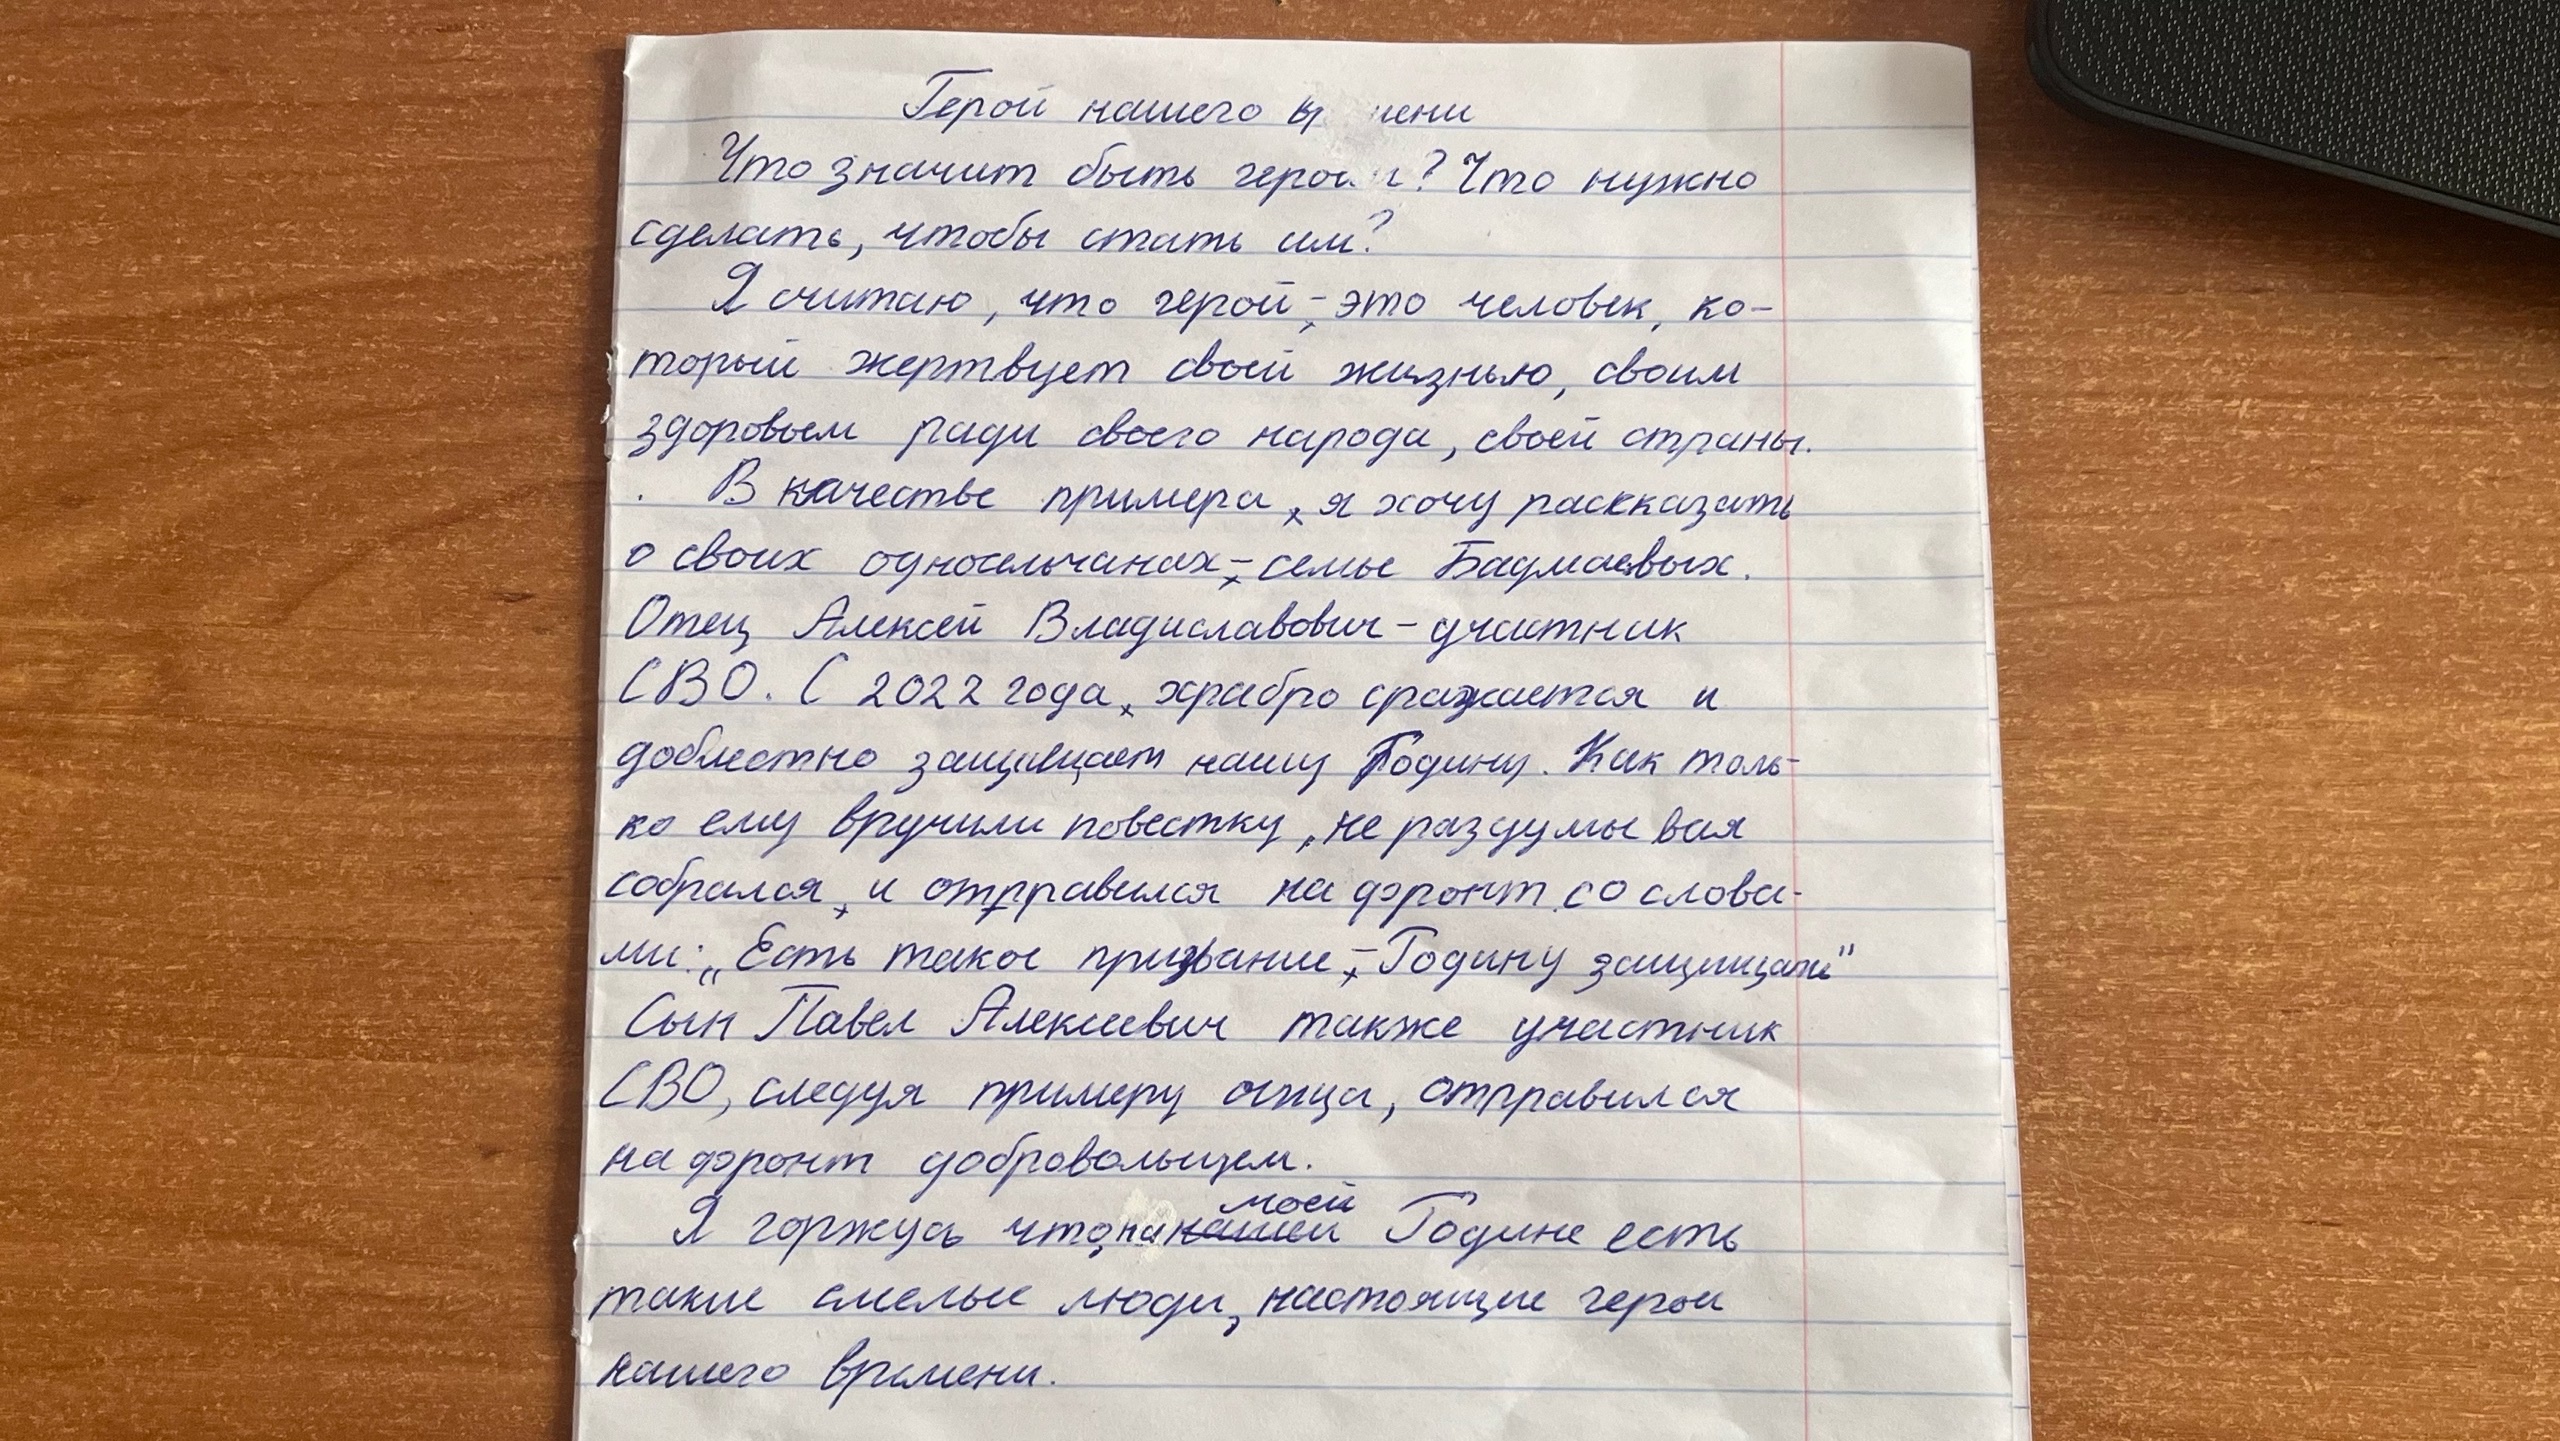 Герой нашего времени
Что значит быть героем? Что нужно
сделать, чтобы стать им?
Я считаю, что герой, - это человек, ко-
торый жертвует своей жизнью, своим
здоровьем ради своего народа, своей страны.
В качестве примера, я хочу расказать
о своих односельчанах, - семье Бадмаевых.
Отец Алексей Владиславович - участник
СВО. С 2022 года, храбро сражается и
доблестно защищает нашу Родину. Как толь-
ко ему вручили повестку, не раздумывая
собрался, и отправился на фронт со слова-
ми: „Есть такое призвание, - Родину защищать"
Сын Павел Алексеевич также участник
СВО, следуя примеру отца, отправился
на фронт добровольцем.
Я горжусь что, на нашей моей Родине есть
такие смелые люди, настоящие герои
нашего времени.